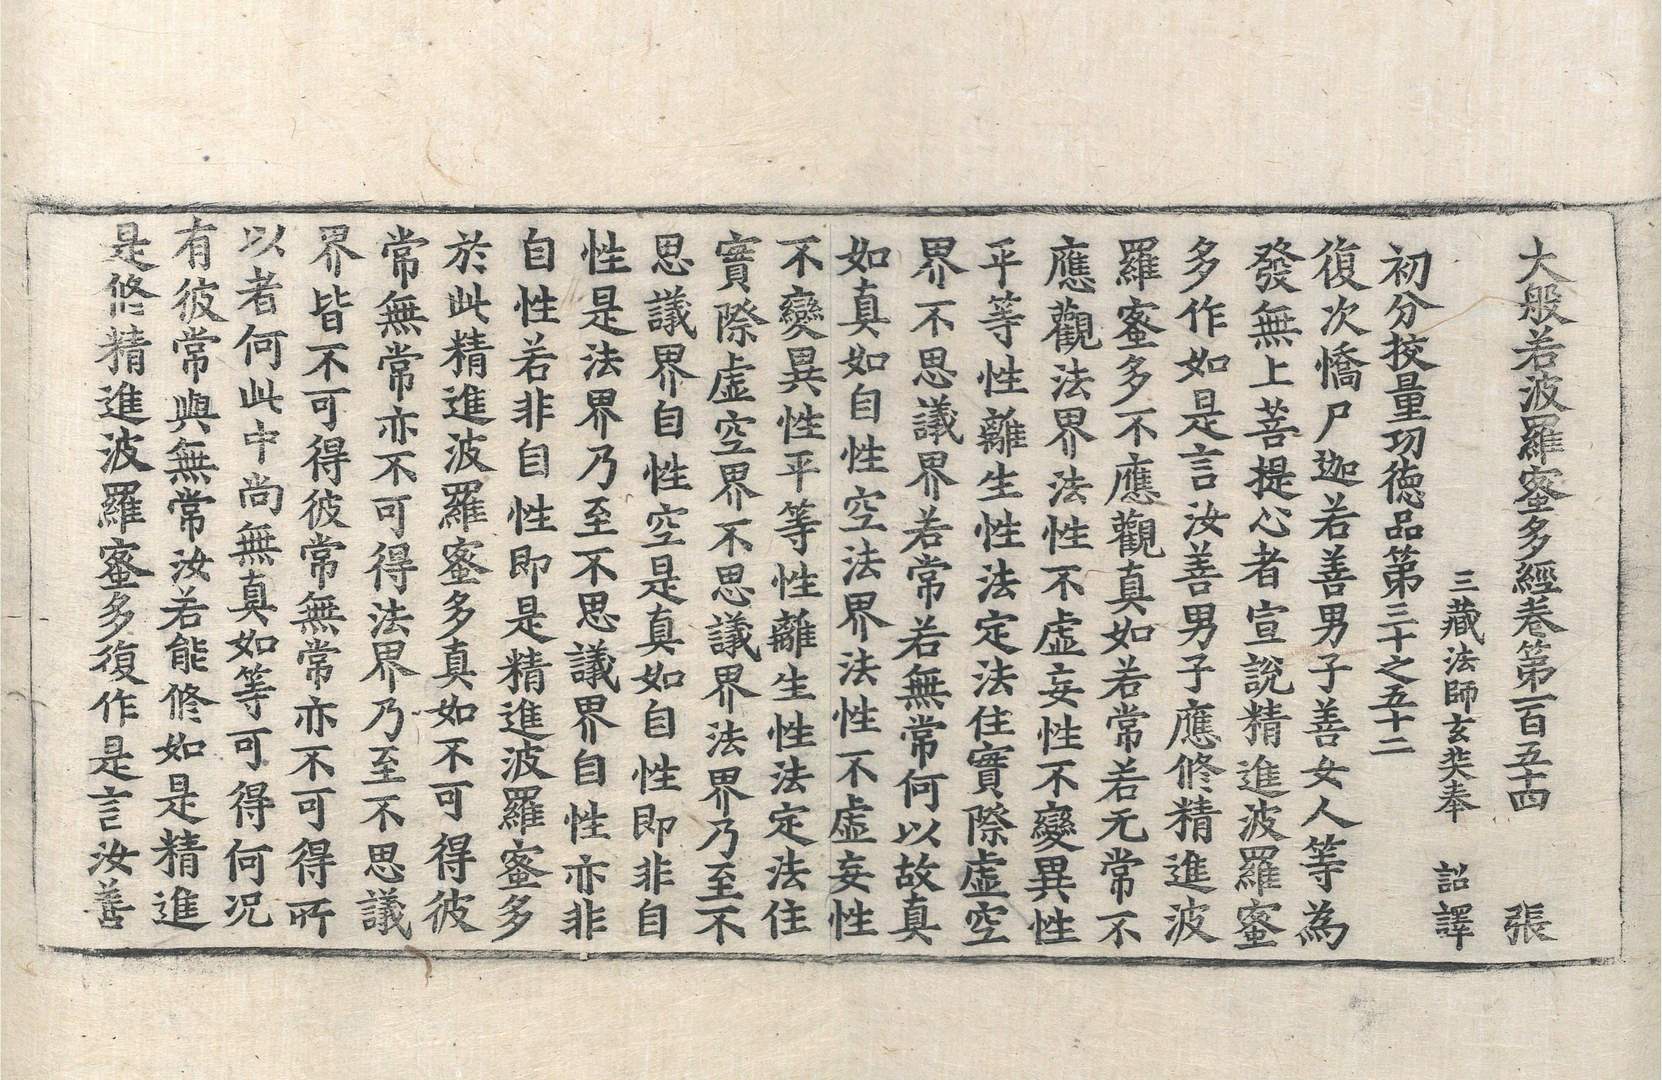 大般若波羅蜜多經卷第一百五十四　張
三藏法師玄奘奉　詔譯
初分挍量功德品第三十之五十二
復次憍尸迦若善男子善女人等為
發無上菩提心者宣說精進波羅蜜
多作如是言汝善男子應修精進波
羅蜜多不應觀真如若常若无常不
應觀法界法性不虛妄性不變異性
平等性離生性法定法住實際虛空
界不思議界若常若無常何以故真
如真如自性空法界法性不虛妄性
不變異性平等性離生性法定法住
實際虛空界不思議界法界乃至不
思議界自性空是真如自性即非自
性是法界乃至不思議界自性亦非
自性若非自性即是精進波羅蜜多
於此精進波羅蜜多真如不可得彼
常無常亦不可得法界乃至不思議
界皆不可得彼常無常亦不可得所
以者何此中尚無真如等可得何況
有彼常與無常汝若能修如是精進
是修精進波羅蜜多復作是言汝善